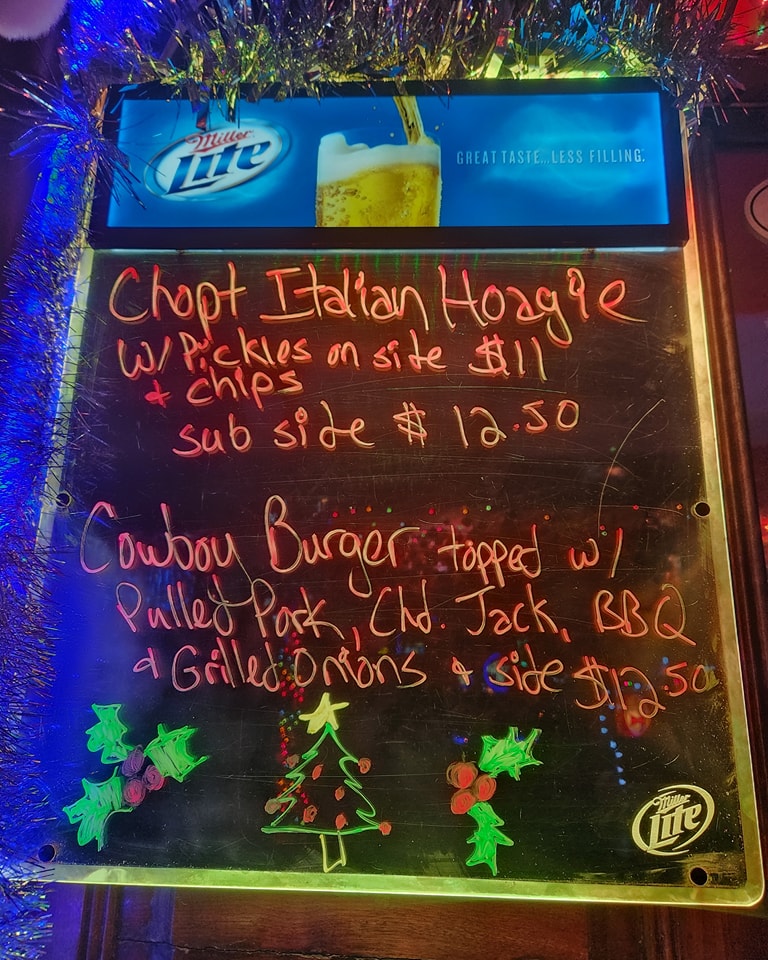 Miller
Lite
GREAT TASTE...LESS FILLING.
Chopt Italian Hoagie
w/ Pickles on site $11
& chips
sub side $12.50
Cowboy Burger topped w/
Pulled Pork, Chd. Jack, BBQ
& Grilled Onions & side $12.50
Miller
Lite